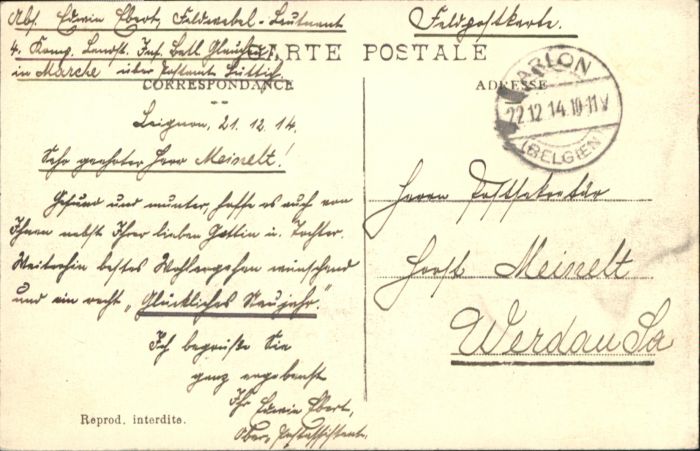 Abs. Edwin Ebert, Feldwebel-Leutnant
4. Komp. Landst. Inf. Batl. Glauchau
in Marche über Postamt Lüttich
Feldpostkarte.
CARTE POSTALE
CORRESPONDANCE
ADRESSE
ARLON
22.12.14.10-11V
(BELGIEN)
Leignon, 21.12.14.
Sehr geehrter Herr Meinelt!
Gesund und munter, hoffe es auch von
Ihnen nebst Ihrer lieben Gattin u. Tochter.
Weiterhin bestes Wohlergehen wünschend
und ein recht „Glückliches Neujahr".
Ich begrüße Sie
ganz ergebenst
Ihr Edwin Ebert,
Ober-Postassistent.
Herrn Postsekretär
Horst Meinelt
Werdau Sa
Reprod. interdite.